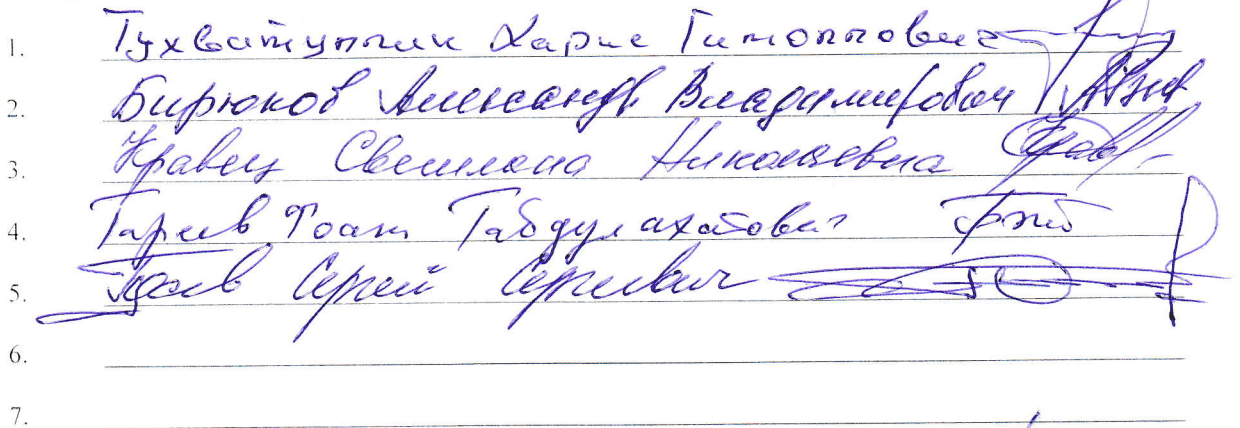 1. Тухватуллин Харис Гимоллович
2. Бирюков Александр Владимирович
3. Кравец Светлана Николаевна
4. Гареев Габдулахатович
5. Сергей Сергеевич
6.
7.